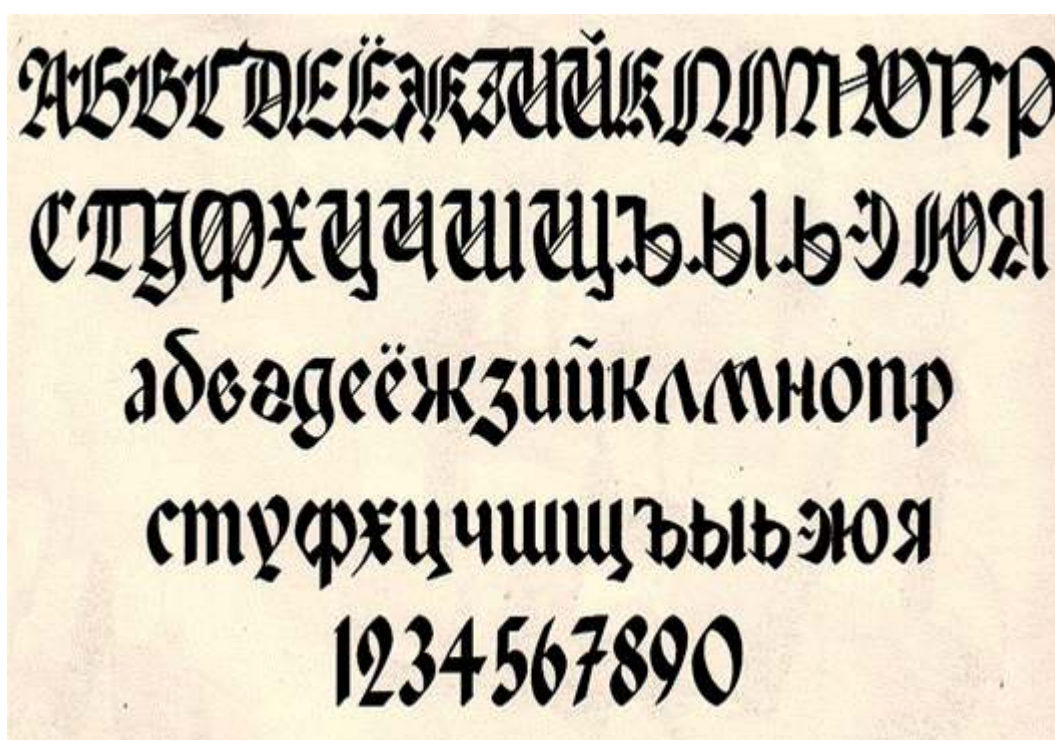 АБВГДЕЁЖЗИЙКЛМНОПР
СТУФХЦЧШЩЪЫЬЭЮЯ
абвгдеёжзийклмнопр
стуфхцчшщъыьэюя
1234567890